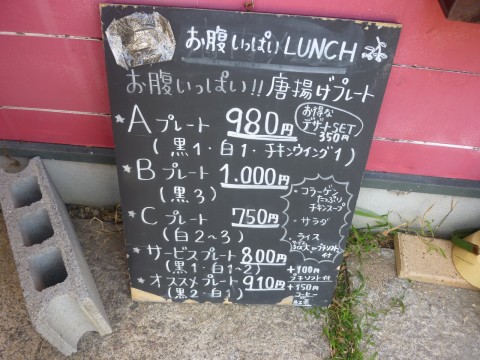 お腹いっぱいLUNCH
お腹いっぱい!!唐揚げプレート
Aプレート 980円
(黒1・白1・チキンウイング1)
お得な
デザートSET
350円
Bプレート 1.000円
(黒3)
Cプレート 750円
(白2~3)
サービスプレート 800円
(黒1・白1~2)
オススメプレート 910円
(黒2・白1)
・コラーゲン
たっぷり
チキンスープ
・サラダ
・ライス
付
+100円
プチソフト付
+150円
コーヒー
or
紅茶